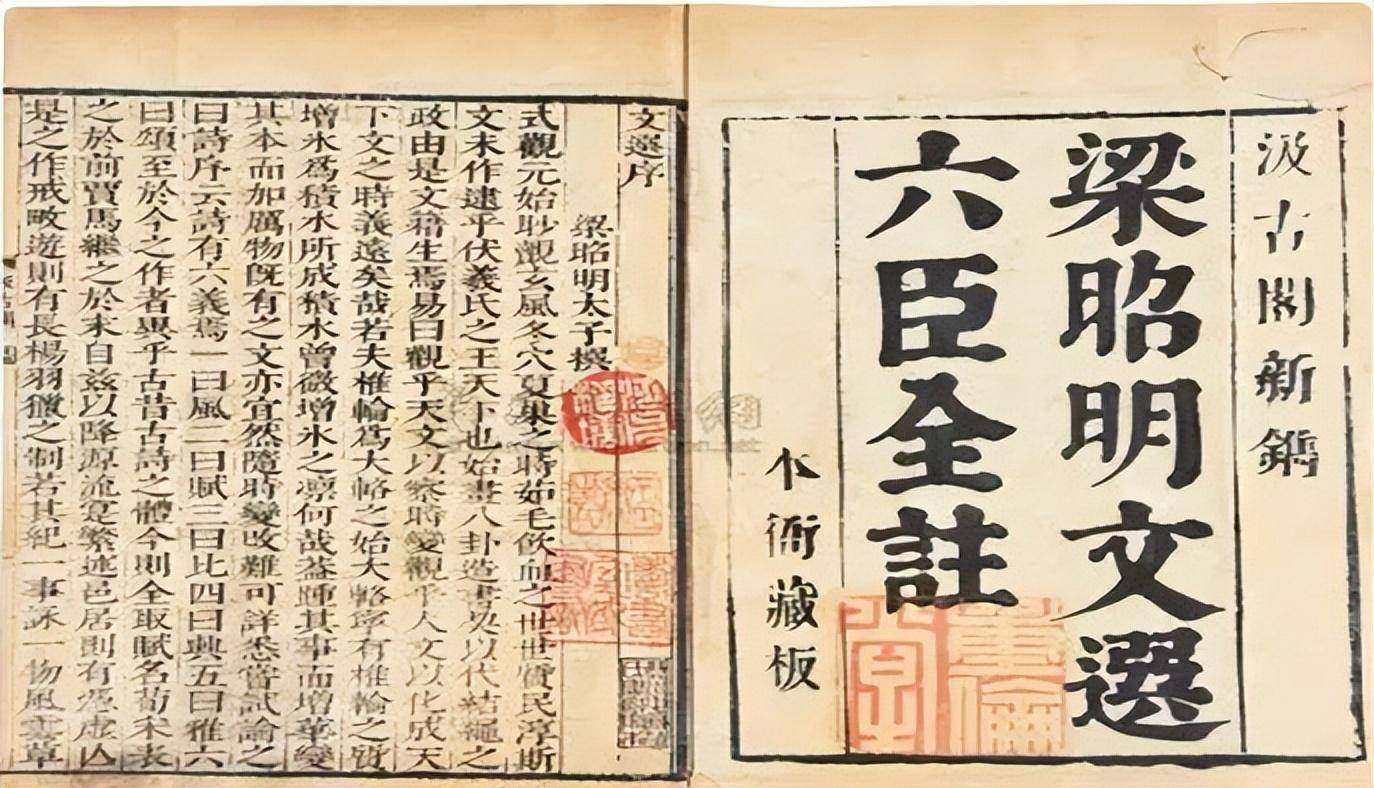 汲古閣新鐫
梁昭明文選
六臣全註
本衙藏板
文選序
梁昭明太子撰
式觀元始眇覿玄風冬穴夏巢之時茹毛飲血之世世質民淳斯
文未作逮乎伏羲氏之王天下也始畫八卦造書契以代結繩之
政由是文籍生焉易曰觀乎天文以察時變觀乎人文以化成天
下文之時義遠矣哉若夫椎輪爲大輅之始大輅寧有椎輪之質
增冰爲積水所成積水曾微增冰之凛何哉葢踵其事而增華變
其本而加厲物旣有之文亦宜然隨時變改難可詳悉嘗試論之
曰詩序云詩有六義焉一曰風二曰賦三曰比四曰興五曰雅六
曰頌至於今之作者異乎古昔古詩之體今則全取賦名荀宋表
之於前賈馬繼之於末自兹以降源流寔繁述邑居則有憑虛亾
是之作戒畋遊則有長楊羽獵之制若其紀一事詠一物風雲草